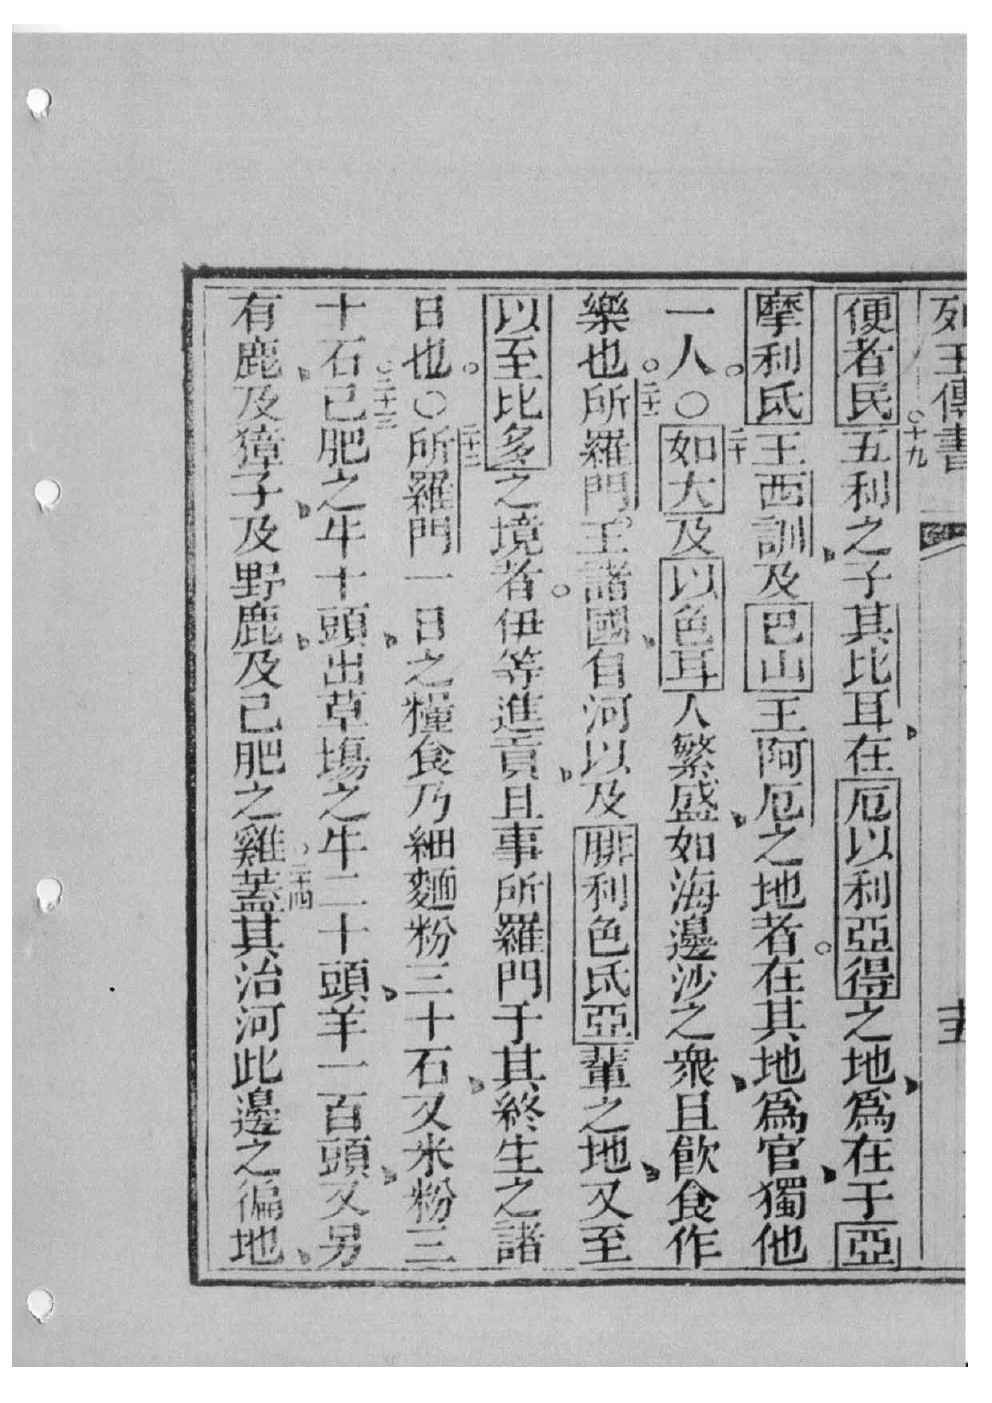 列王傳書
便者民五利之子其比耳在厄以利亞得之地爲在于亞
十九
摩利氐王西訓及巴山王阿厄之地者在其地爲官獨他
一人○如大及以色耳人繁盛如海邊沙之衆且飮食作
二十
樂也所羅門王諸國自河以及腓利色氐亞輩之地又至
二十一
以至比多之境者伊等進貢且事所羅門于其終生之諸
日也○所羅門一日之糧食乃細麵粉三十石又米粉三
二十二
十石已肥之牛十頭出草塲之牛二十頭羊一百頭又另
二十三
有鹿及獐子及野鹿及已肥之雞蓋其治河此邊之徧地
二十四